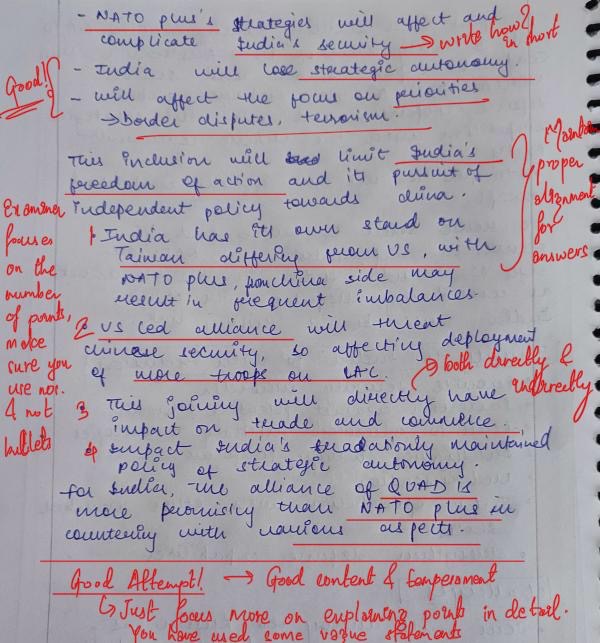 - NATO plus's strategies will affect and
complicate India's security → write how?
in short
Good!
- India will lose strategic autonomy.
- will affect the focus on priorities
→ border disputes, terrorism.
This inclusion will limit India's
freedom of action and its pursuit of
independent policy towards china.
Maintain
proper
alignment
for
answers
1 India has its own stand on
Taiwan differing from US, with
NATO plus, side may
result in frequent imbalances.
Examiner
focuses
on the
number
of points,
make
sure you
use nos.
& not
bullets
2 US led alliance will threat
chinese security, so affecting deployment
of more troops on LAC.
→ both directly &
indirectly
3 This joining will directly have
impact on trade and commerce.
4 Impact India's maintained
policy of strategic autonomy.
for India, the alliance of QUAD is
more than NATO plus in
countering with various aspects.
Good Attempt! → Good content & temperament
↳ Just focus more on explaining points in detail.
You have used some vague statements